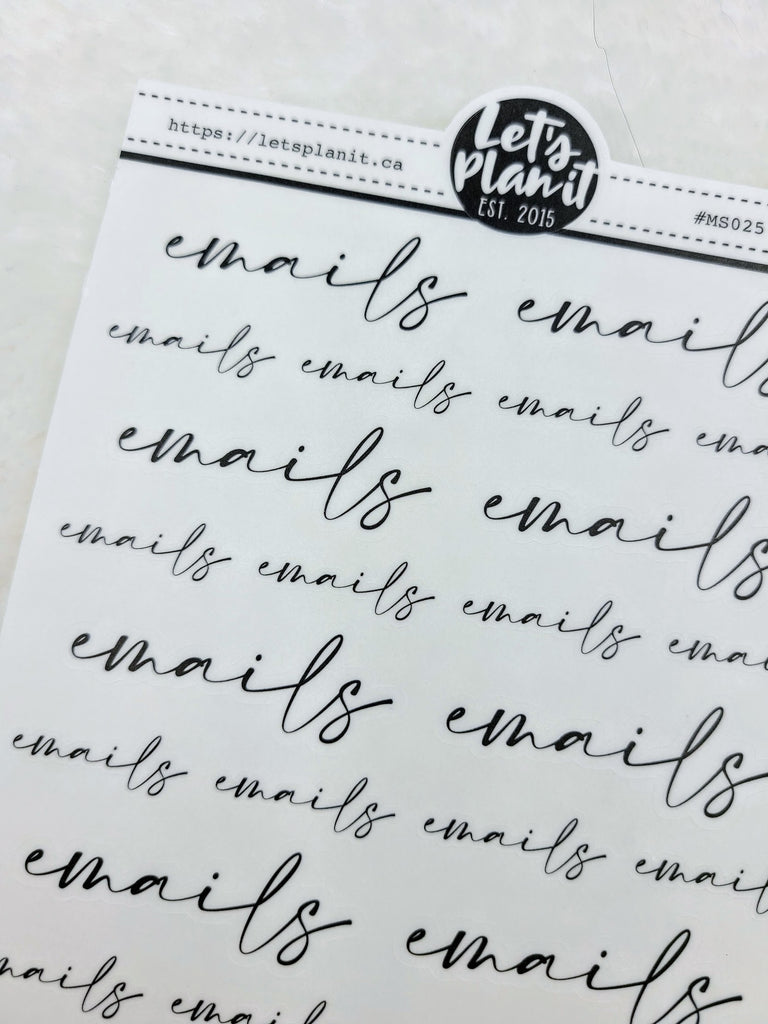 https://letsplanit.ca
Let's
plan it
EST. 2015
#MS025
emails emails
emails emails emails ema
emails emails
emails emails emails emai
emails emails
emails emails emails email
emails emails
mails emails